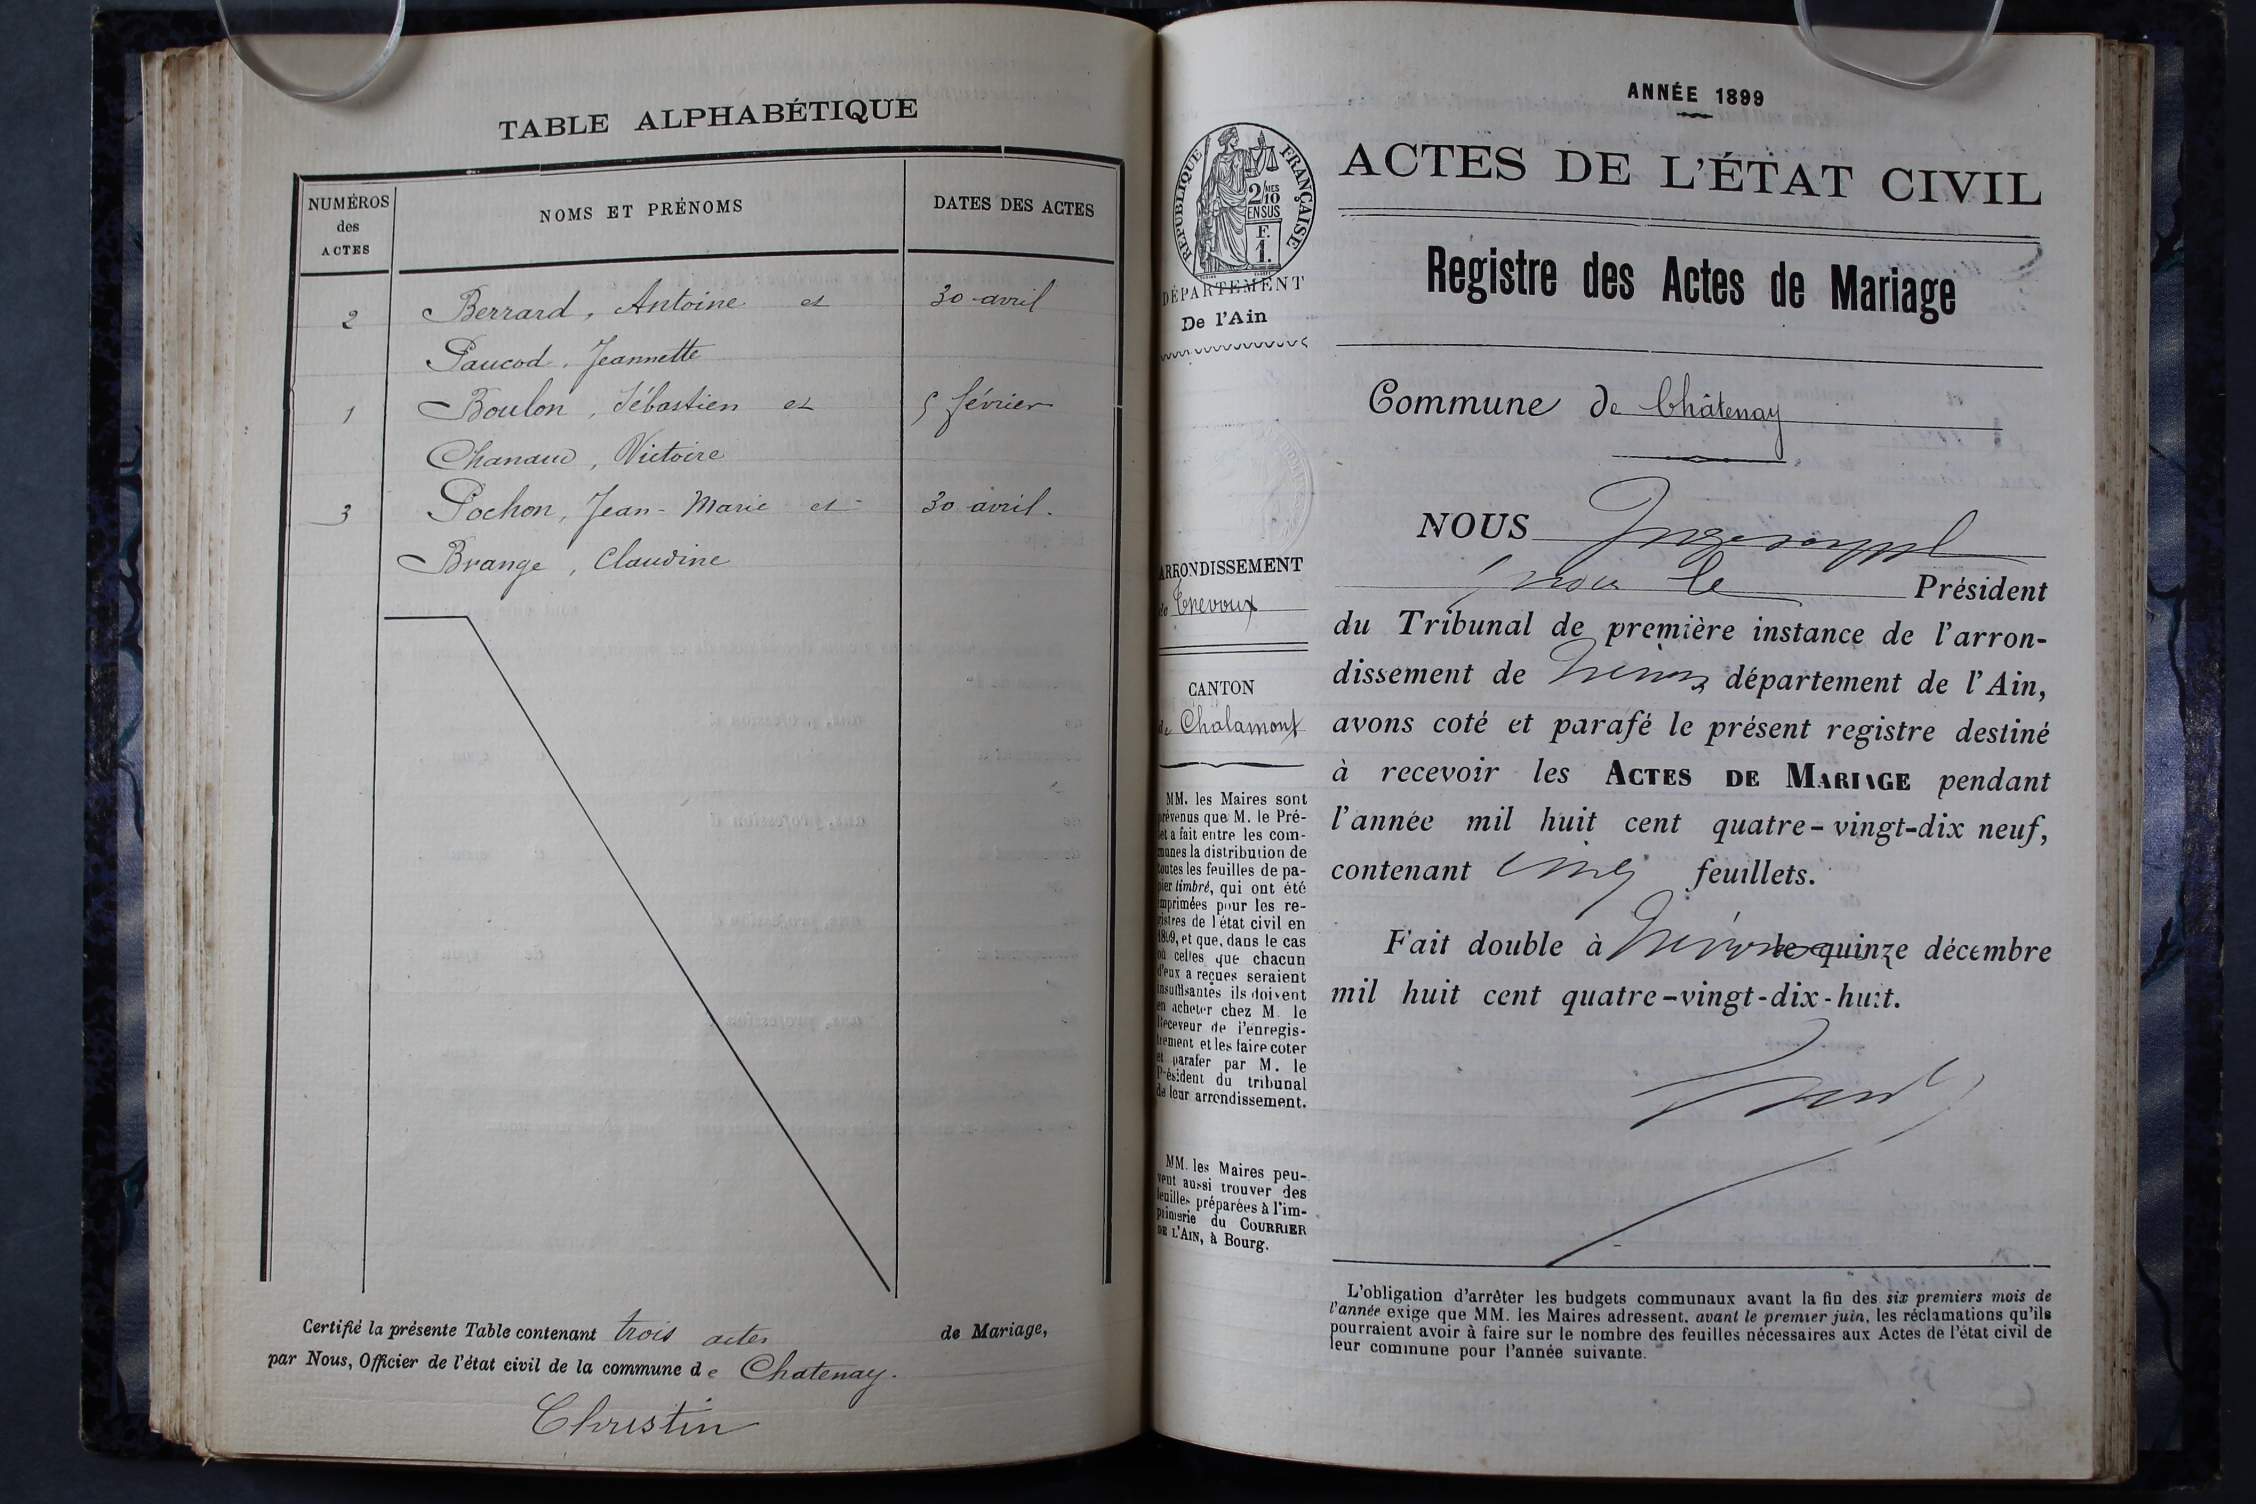 TABLE ALPHABÉTIQUE
NUMÉROS
des
ACTES
NOMS ET PRÉNOMS
DATES DES ACTES
2 Berrard, Antoine et 30 avril
Paucod, Jeannette
1 Boulon, Sébastien et 5 février
Chanaud, Victoire
3 Pochon, Jean-Marie et 30 avril.
Brange, Claudine
Certifié la présente Table contenant trois actes de Mariage,
par Nous, Officier de l'état civil de la commune de Chatenay.
Christin
RÉPUBLIQUE FRANÇAISE
2/10 MES
EN SUS
F.
1.
DÉPARTEMENT
De l'Ain
ARRONDISSEMENT
de Trévoux
CANTON
de Chalamont
MM. les Maires sont
prévenus que M. le Pré-
fet a fait entre les com-
munes la distribution de
toutes les feuilles de pa-
pier timbré, qui ont été
imprimées pour les re-
gistres de l'état civil en
1899, et que, dans le cas
où celles que chacun
d'eux a reçues seraient
insuffisantes ils doivent
en acheter chez M. le
Receveur de l'enregis-
trement et les faire coter
et parafer par M. le
Président du tribunal
de leur arrondissement.
MM. les Maires peu-
vent aussi trouver des
feuilles préparées à l'im-
primerie du COURRIER
DE L'AIN, à Bourg.
ANNÉE 1899
ACTES DE L'ÉTAT CIVIL
Registre des Actes de Mariage
Commune de Châtenay
NOUS
pour le Président
du Tribunal de première instance de l'arron-
dissement de Trévoux département de l'Ain,
avons coté et parafé le présent registre destiné
à recevoir les ACTES DE MARIAGE pendant
l'année mil huit cent quatre-vingt-dix neuf,
contenant cinq feuillets.
Fait double à Trévoux le quinze décembre
mil huit cent quatre-vingt-dix-huit.
L'obligation d'arrêter les budgets communaux avant la fin des six premiers mois de
l'année exige que MM. les Maires adressent, avant le premier juin, les réclamations qu'ils
pourraient avoir à faire sur le nombre des feuilles nécessaires aux Actes de l'état civil de
leur commune pour l'année suivante.